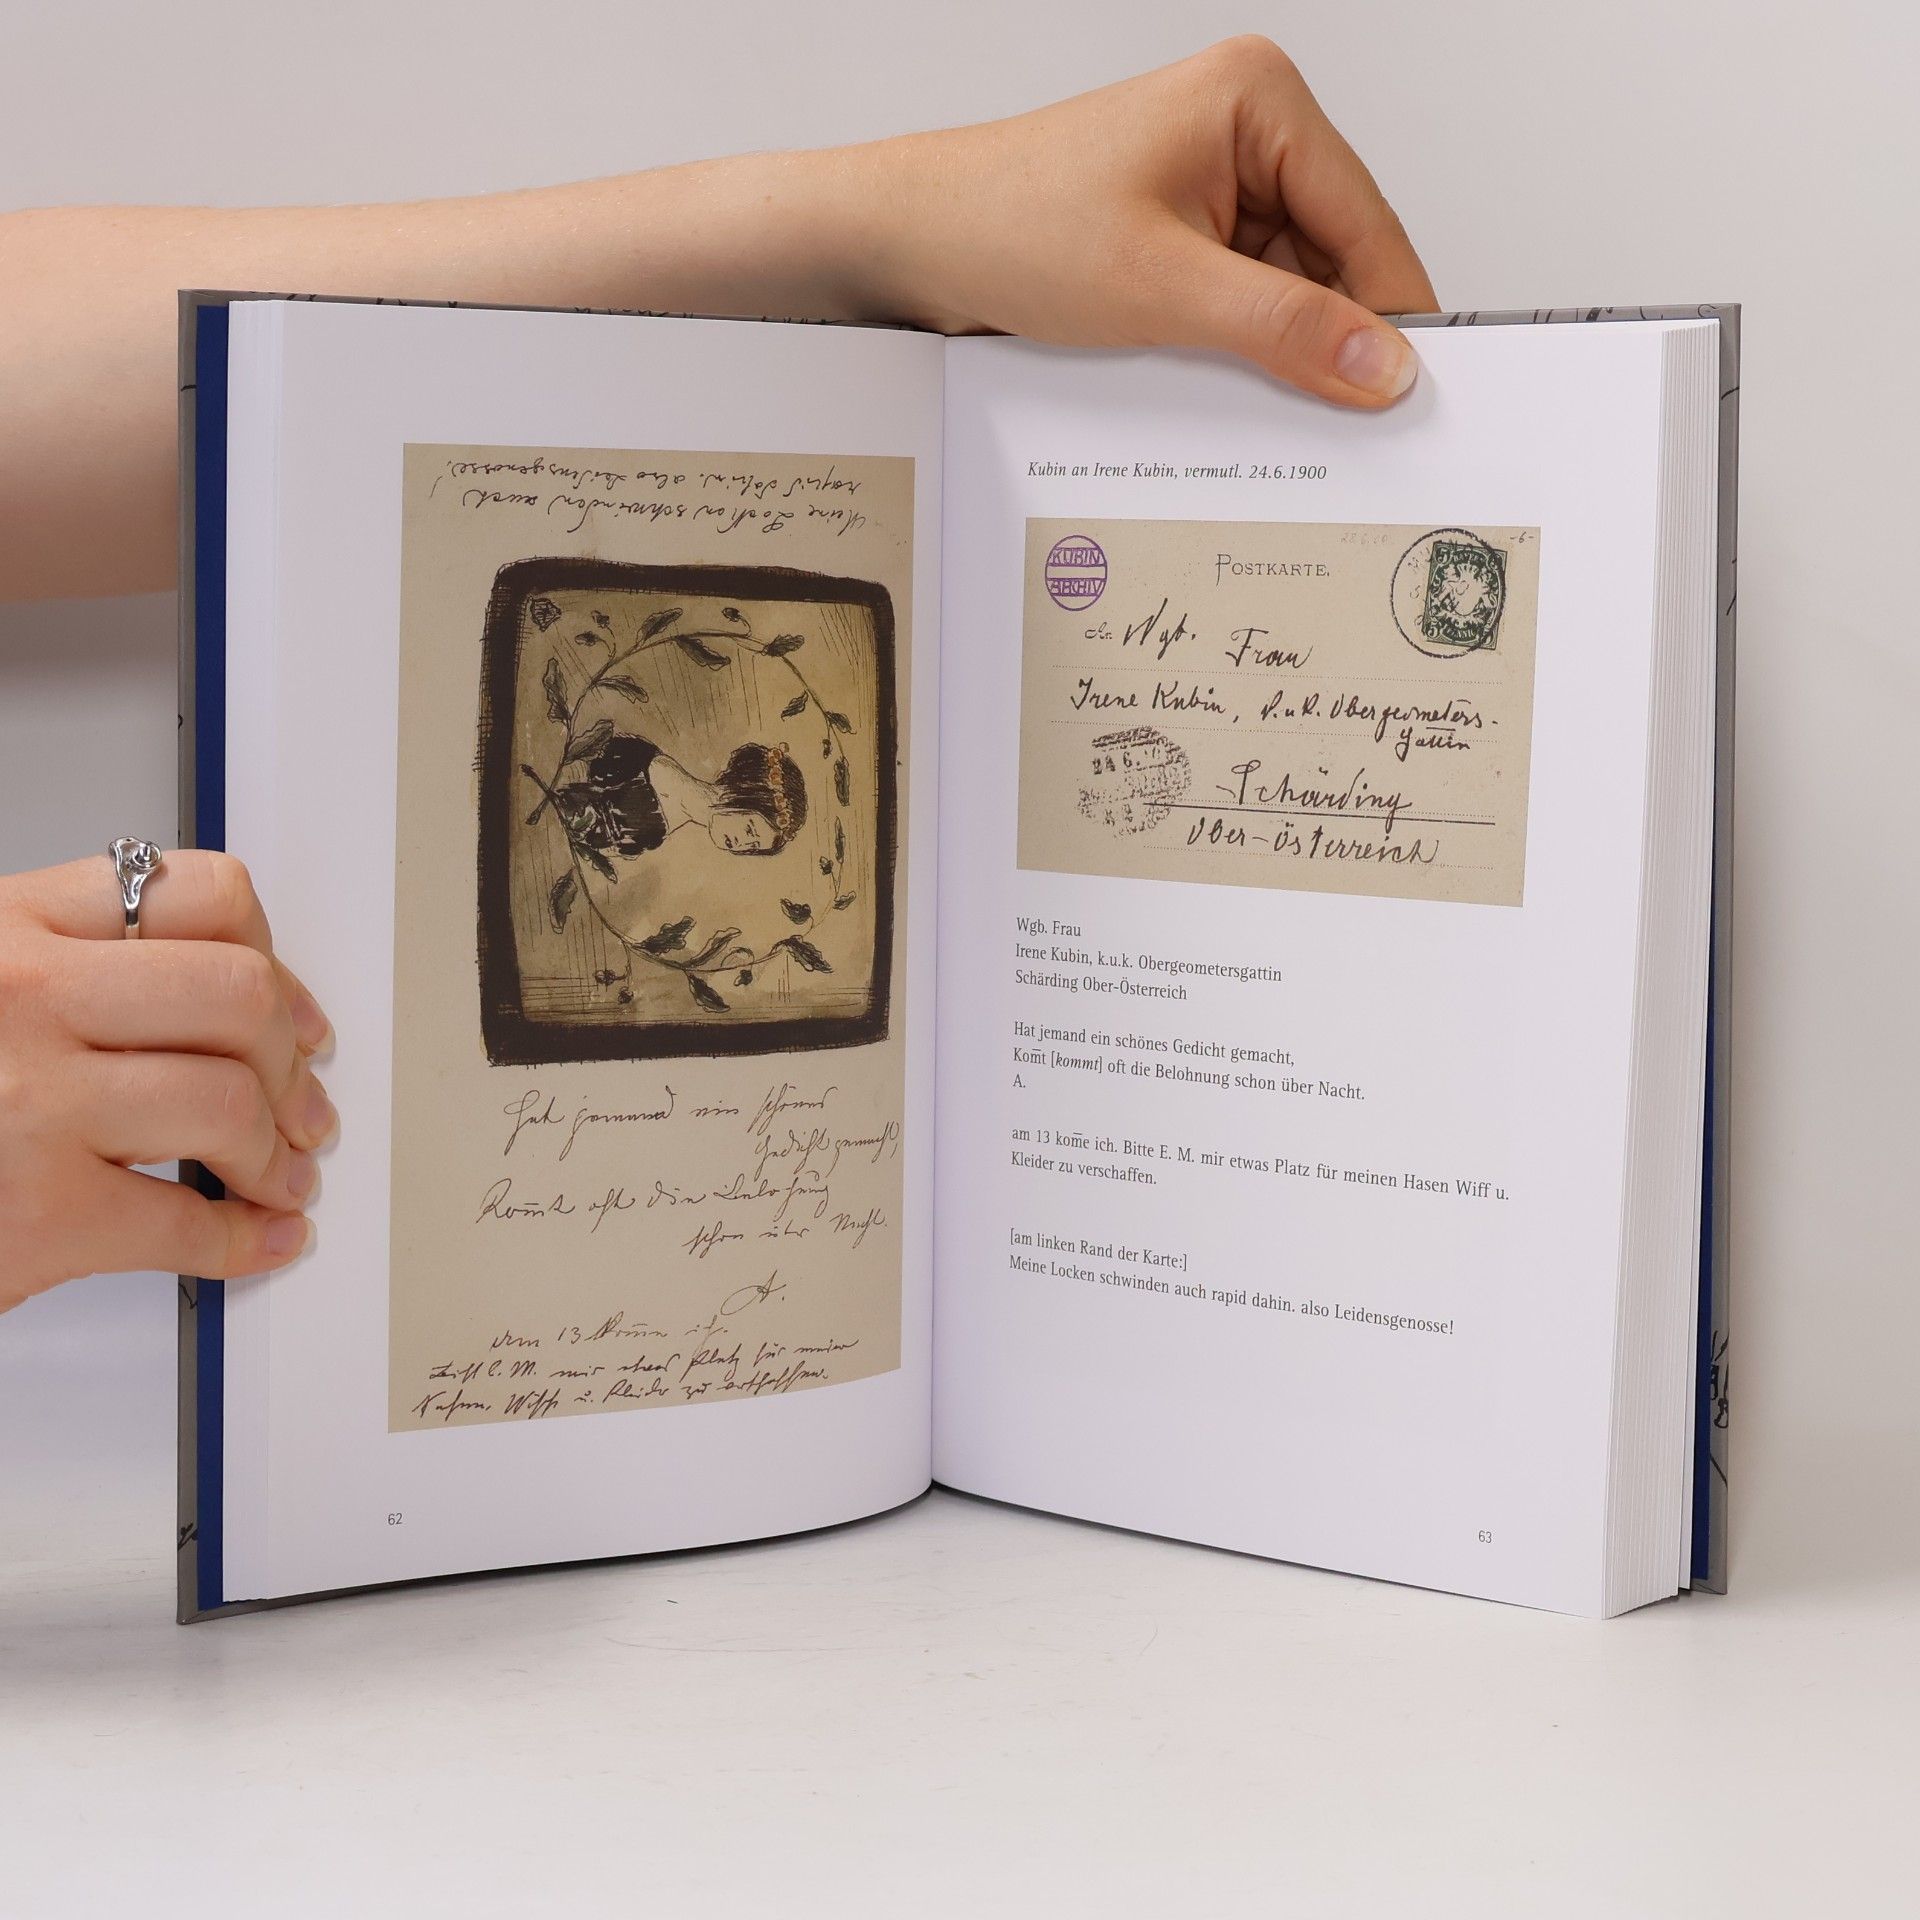 Meine Locken schwinden auch
rapid dahin. also Leidensgenosse!
Hat jemand ein schönes
Gedicht gemacht,
Kom̅t oft die Belohnung
schon über Nacht.
A.
am 13 kom̅e ich.
Bitte E. M. mir etwas Platz für meinen
Hasen Wiff u. Kleider zu verschaffen.
62
Kubin an Irene Kubin, vermutl. 24.6.1900
KUBIN
ARCHIV
28.6.00
-6-
POSTKARTE.
BAYERN
5
PFENNIG
An Wgb. Frau
Irene Kubin, k.u.k. Obergeometers-
gattin
24 6.
Schärding
Ober-Österreich
Wgb. Frau
Irene Kubin, k.u.k. Obergeometersgattin
Schärding Ober-Österreich
Hat jemand ein schönes Gedicht gemacht,
Kom̅t [kommt] oft die Belohnung schon über Nacht.
A.
am 13 kom̅e ich. Bitte E. M. mir etwas Platz für meinen Hasen Wiff u.
Kleider zu verschaffen.
[am linken Rand der Karte:]
Meine Locken schwinden auch rapid dahin. also Leidensgenosse!
63